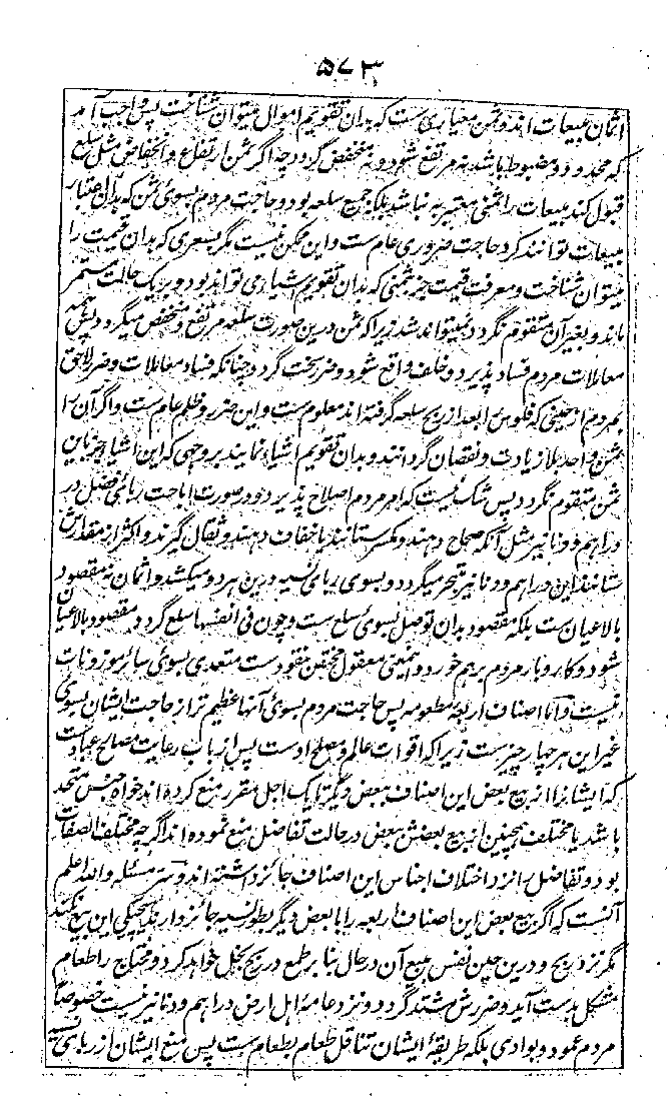 ۵۷۳
اثمان مبیعات اند و ثمن معیاری ست که بدان تقویم اموال میتوان شناخت پس واجب آمد
که محدود و مضبوط باشد نه مرتفع شود و نه منخفض گردد چه اگر ثمن ارتفاع و انخفاض مثل سلع
قبول کند مبیعات را ثمنی معتبر به نباشد بلکه جمیع سلعه بود و حاجت مردم بسوی ثمن که بدان اعتبار
مبیعات توانند کرد حاجت ضروری عام ست و این ممکن نیست مگر بسعری که بدان قیمت را
میتوان شناخت و معرفت قیمت جز بثمنی که بدان تقویم اشیاء تواند بود و بر یک حالت مستمر
ماند و بغیر آن متقوم نگردد نمیتواند شد زیرا که ثمن درین صورت سلعه مرتفع و منخفض میگردد پس همه
معاملات مردم فساد پذیرد و خلف واقع شود و ضرر سخت گردد چنانکه فساد معاملات و ضرر لاحق
بمردم از حینی که فلوس را بعد از ربح سلعه گرفته اند معلوم ست و این ضرر و ظلم عام ست و اگر آن را
ثمن واحد بلا زیادت و نقصان گردانند و بدان تقویم اشیاء نمایند بر وجهی که این اشیا جز باین
ثمن متقوم نگردد پس شک نیست که امر مردم اصلاح پذیرد و در صورت اباحت ربای فضل در
دراهم و دنانیر مثل آنکه صحاح دهند و مکسر ستانند یا خفاف دهند و ثقال گیرند و اکثر از مقدارش
ستانند این دراهم و دنانیر متجر میگردد و بسوی ربای نسیه درین هر دو میکشد و اثمان نه مقصود
بالاعیان ست بلکه مقصود بدان توصل بسوی سلع ست و چون فی انفسها سلع گردد مقصود بالاعیان
شود و کاروبار مردم برهم خورد و این معنی معقول مختص نقود ست متعدی بسوی سائر موزونات
نیست و اما اصناف اربعه مطعومه پس حاجت مردم بسوی آنها عظیم تر از حاجت ایشان بسوی
غیر این هر چهار چیز ست زیرا که اقوات عالم و مصلح اوست پس از باب رعایت مصالح عباد ست
که ایشان را از بیع بعض این اصناف ببعض دیگر تا یک اجل مقرر منع کرده اند خواه جنس متحد
باشد یا مختلف همچنین از بیع بعضش ببعض در حالت تفاضل منع نموده اند اگرچه مختلف الصفات
بود و تفاضل را نزد اختلاف اجناس این اصناف جائز داشته اند و سر مسئله والله اعلم
آنست که اگر بیع بعض این اصناف اربعه را با بعض دیگر بطور نسیه جائز دارند هیچکی این بیع نکند
مگر نزد ربح و درین حین نفس ببیع آن در حال بنا بر طمع در ربح بخل خواهد کرد و محتاج را طعام
مشکل بدست آید و ضررش مشتد گردد و نزد عامهٔ اهل ارض دراهم و دنانیر نیست خصوصاً
مردم عمود و بوادی بلکه طریقهٔ ایشان تناقل طعام بطعام ست پس منع ایشان از ربای نسیه